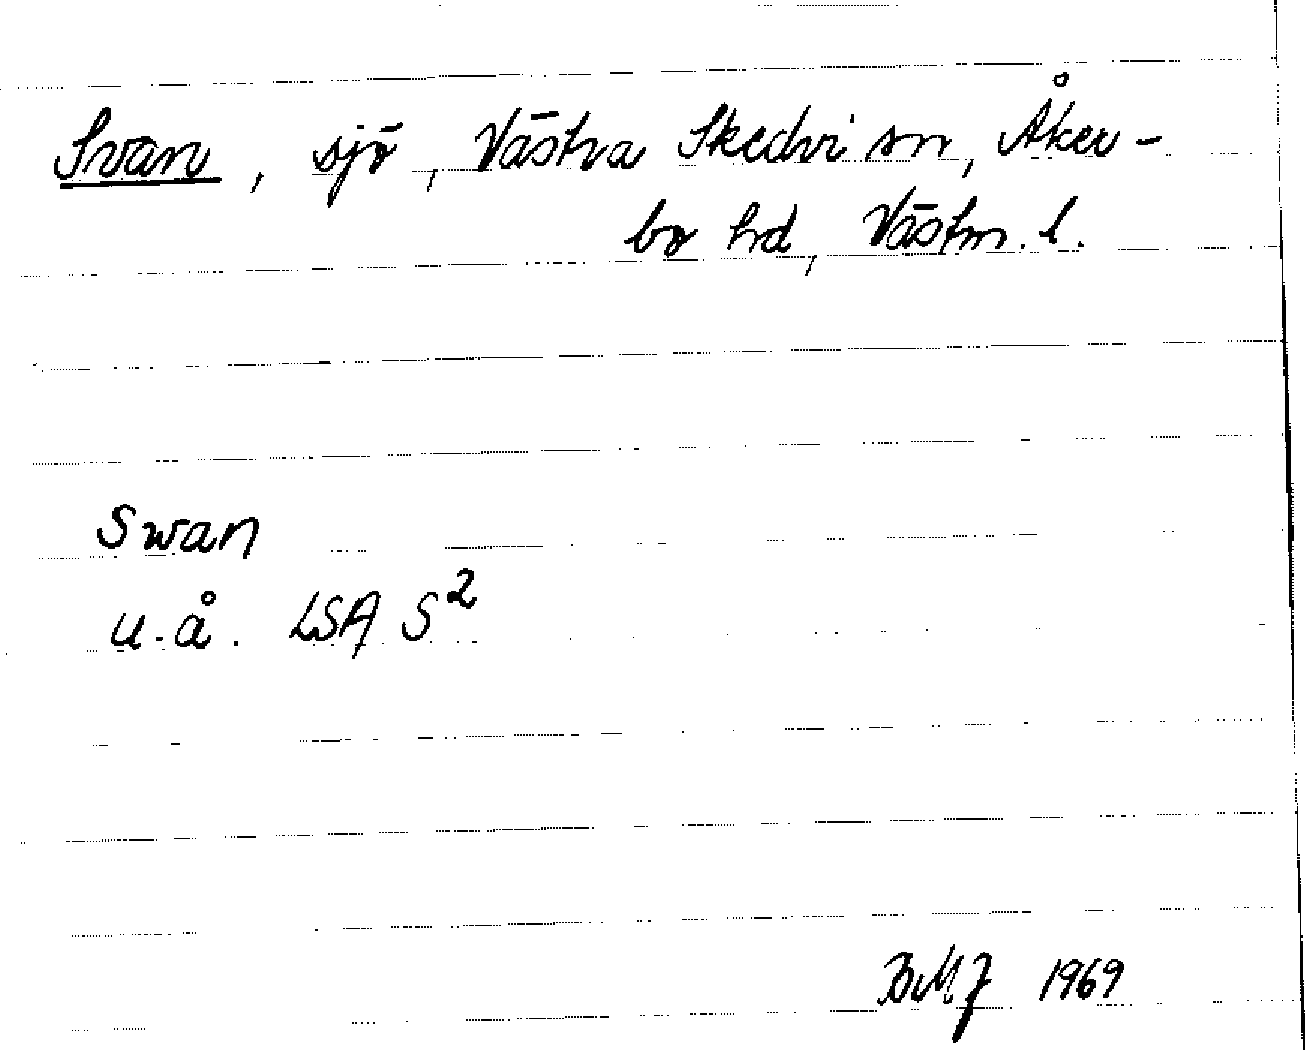 Svan, sjö, Västra Skedvi sn, Åker-
bo hd, Västm. l.
Swan
u.å. LSA S²
BMJ 1969